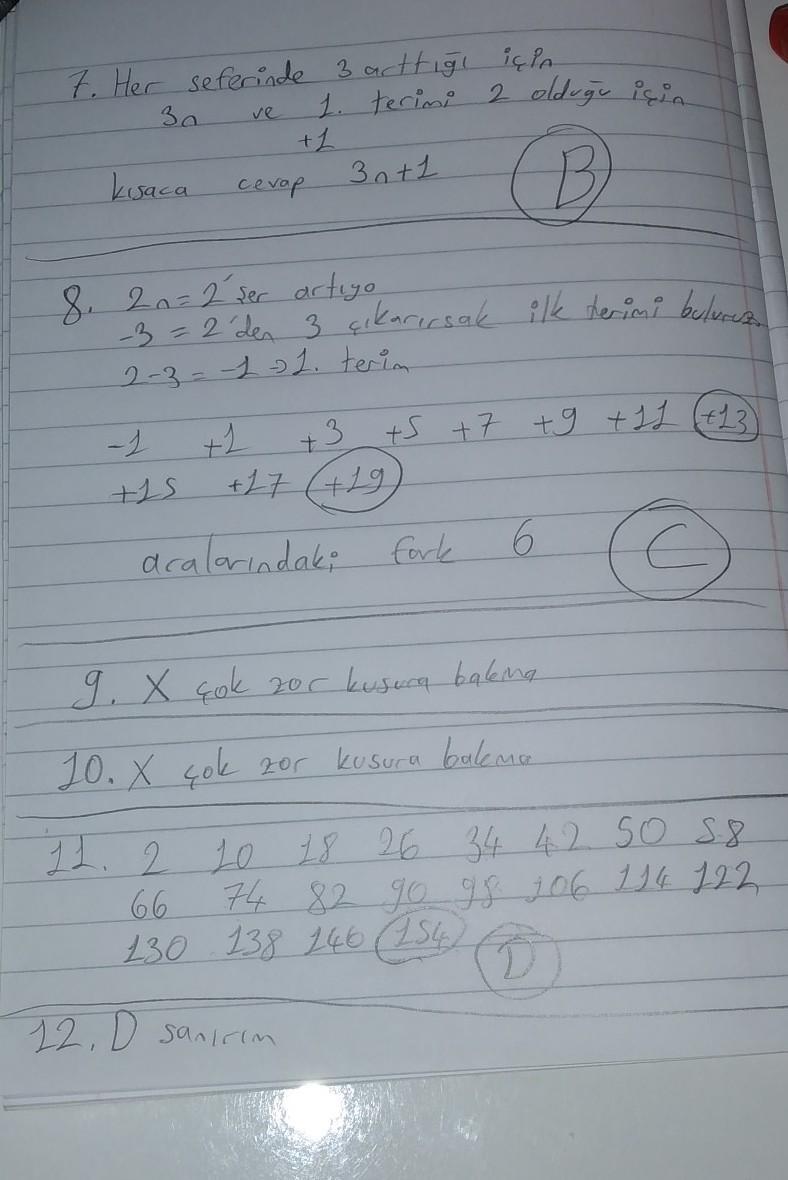 7. Her seferinde 3 arttığı için
3n ve 1. terimi 2 olduğu için
+1
kısaca cevap 3n+1 B
8. 2n = 2'şer artıyo
-3 = 2'den 3 çıkarırsak ilk terimi buluruz
2-3 = -1 → 1. terim
-1 +1 +3 +5 +7 +9 +11 +13
+15 +17 +19
aralarındaki fark 6 C
9. X çok zor kusura bakma
10. X çok zor kusura bakma
11. 2 10 18 26 34 42 50 58
66 74 82 90 98 106 114 122
130 138 146 154 D
12. D sanırım